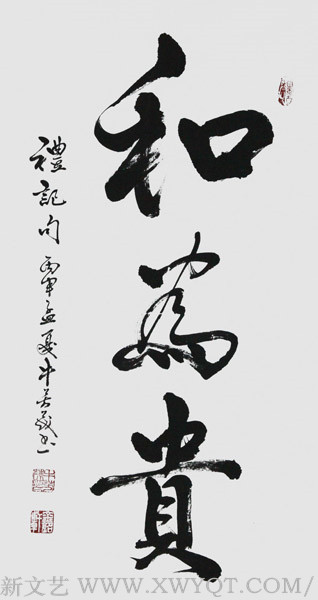 和為貴
禮記句 丙申孟夏
新文艺 WWW.XWYQT.COM/